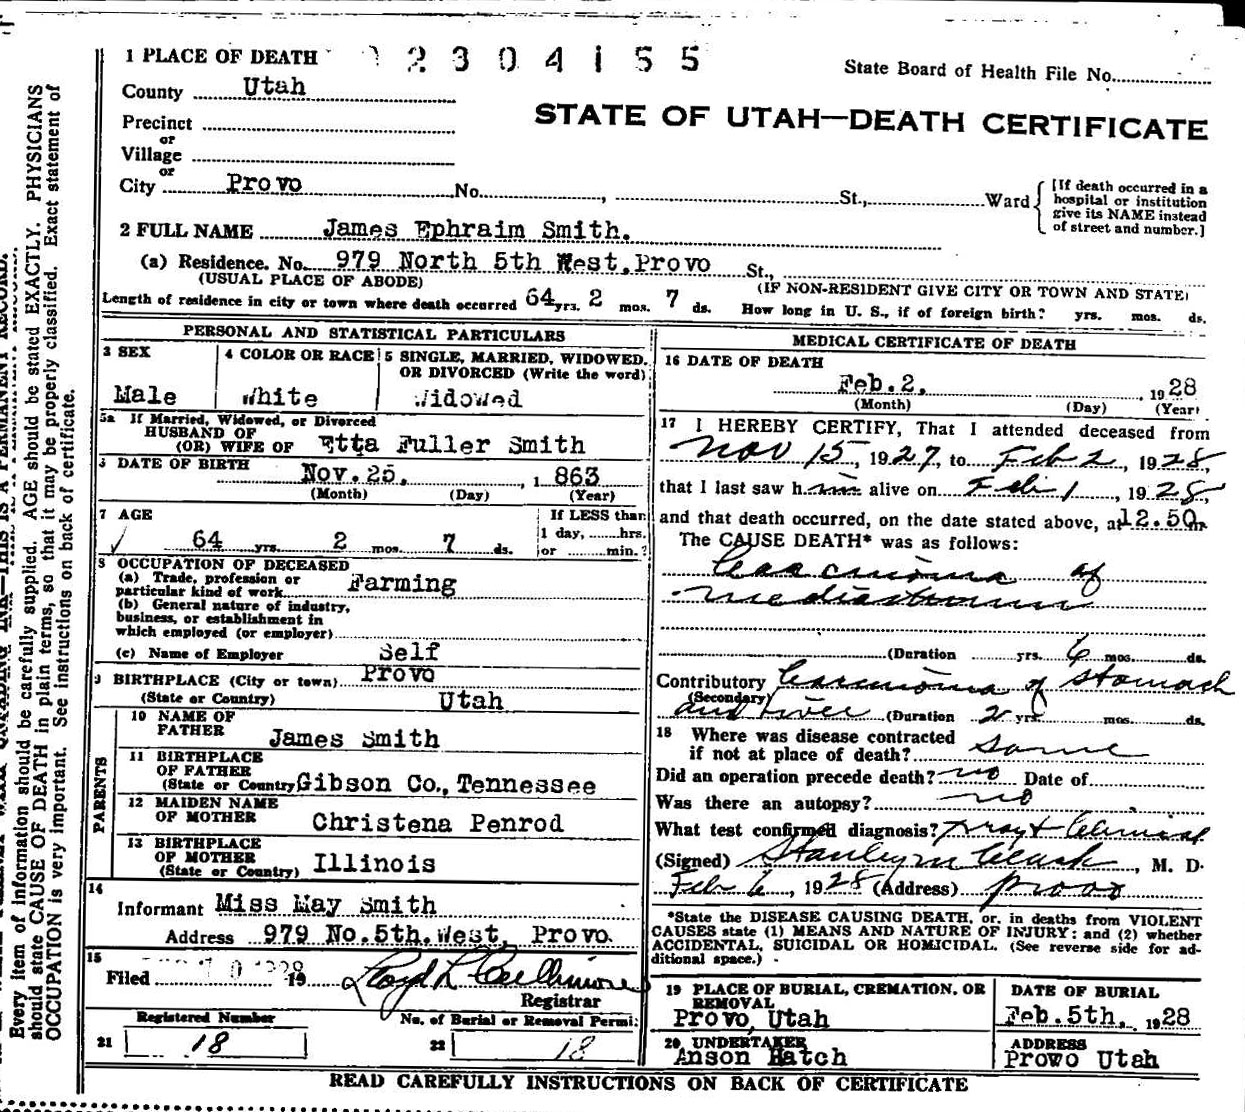 1 PLACE OF DEATH 2304155
State Board of Health File No.
County Utah
STATE OF UTAH—DEATH CERTIFICATE
Precinct
or
Village
or
City Provo No. , St., Ward
[If death occurred in a
hospital or institution
give its NAME instead
of street and number.]
2 FULL NAME James Ephraim Smith.
(a) Residence. No. 979 North 5th West, Provo St.,
(USUAL PLACE OF ABODE) (IF NON-RESIDENT GIVE CITY OR TOWN AND STATE)
Length of residence in city or town where death occurred 64 yrs. 2 mos. 7 ds. How long in U. S., if of foreign birth? yrs. mos. ds.
PERSONAL AND STATISTICAL PARTICULARS
3 SEX
Male
4 COLOR OR RACE
White
5 SINGLE, MARRIED, WIDOWED,
OR DIVORCED (Write the word)
Widowed
5a If Married, Widowed, or Divorced
HUSBAND OF
(OR) WIFE OF Etta Fuller Smith
6 DATE OF BIRTH
Nov. 25, 1 863
(Month) (Day) (Year)
7 AGE
64 yrs. 2 mos. 7 ds.
If LESS than
1 day, ......hrs.
or ......min.?
8 OCCUPATION OF DECEASED
(a) Trade, profession or
particular kind of work Farming
(b) General nature of industry,
business, or establishment in
which employed (or employer)
(c) Name of Employer Self
9 BIRTHPLACE (City or town) Provo
(State or Country) Utah
PARENTS
10 NAME OF
FATHER James Smith
11 BIRTHPLACE
OF FATHER
(State or Country) Gibson Co., Tennessee
12 MAIDEN NAME
OF MOTHER Christena Penrod
13 BIRTHPLACE
OF MOTHER
(State or Country) Illinois
14
Informant Miss May Smith
Address 979 No. 5th. West, Provo.
15
Filed 1928 19 Lloyd L Cullimore
Registrar
Registered Number
21 18
No. of Burial or Removal Permit
22 18
MEDICAL CERTIFICATE OF DEATH
16 DATE OF DEATH
Feb. 2, 1928
(Month) (Day) (Year)
17 I HEREBY CERTIFY, That I attended deceased from
Nov 15, 1927, to Feb 2, 1928,
that I last saw him alive on Feb 1, 1928,
and that death occurred, on the date stated above, at 12.50 m.
The CAUSE DEATH* was as follows:
Carcinoma of
mediastinum
(Duration yrs. 6 mos. ds.
Contributory Carcinoma of Stomach
(Secondary)
and Liver (Duration 2 yrs. mos. ds.
18 Where was disease contracted
if not at place of death? Same
Did an operation precede death? no Date of
Was there an autopsy? no
What test confirmed diagnosis? Xray & Clinical
(Signed) Stanley M Clark, M. D.
Feb 6, 1928 (Address) Provo
*State the DISEASE CAUSING DEATH, or, in deaths from VIOLENT
CAUSES state (1) MEANS AND NATURE OF INJURY: and (2) whether
ACCIDENTAL, SUICIDAL OR HOMICIDAL. (See reverse side for ad-
ditional space.)
19 PLACE OF BURIAL, CREMATION, OR
REMOVAL
Provo, Utah
DATE OF BURIAL
Feb. 5th, 1928
20 UNDERTAKER
Anson Hatch
ADDRESS
Provo Utah
READ CAREFULLY INSTRUCTIONS ON BACK OF CERTIFICATE
THIS IS A PERMANENT RECORD.
Every item of information should be carefully supplied. AGE should be stated EXACTLY. PHYSICIANS
should state CAUSE OF DEATH in plain terms, so that it may be properly classified. Exact statement of
OCCUPATION is very important. See instructions on back of certificate.